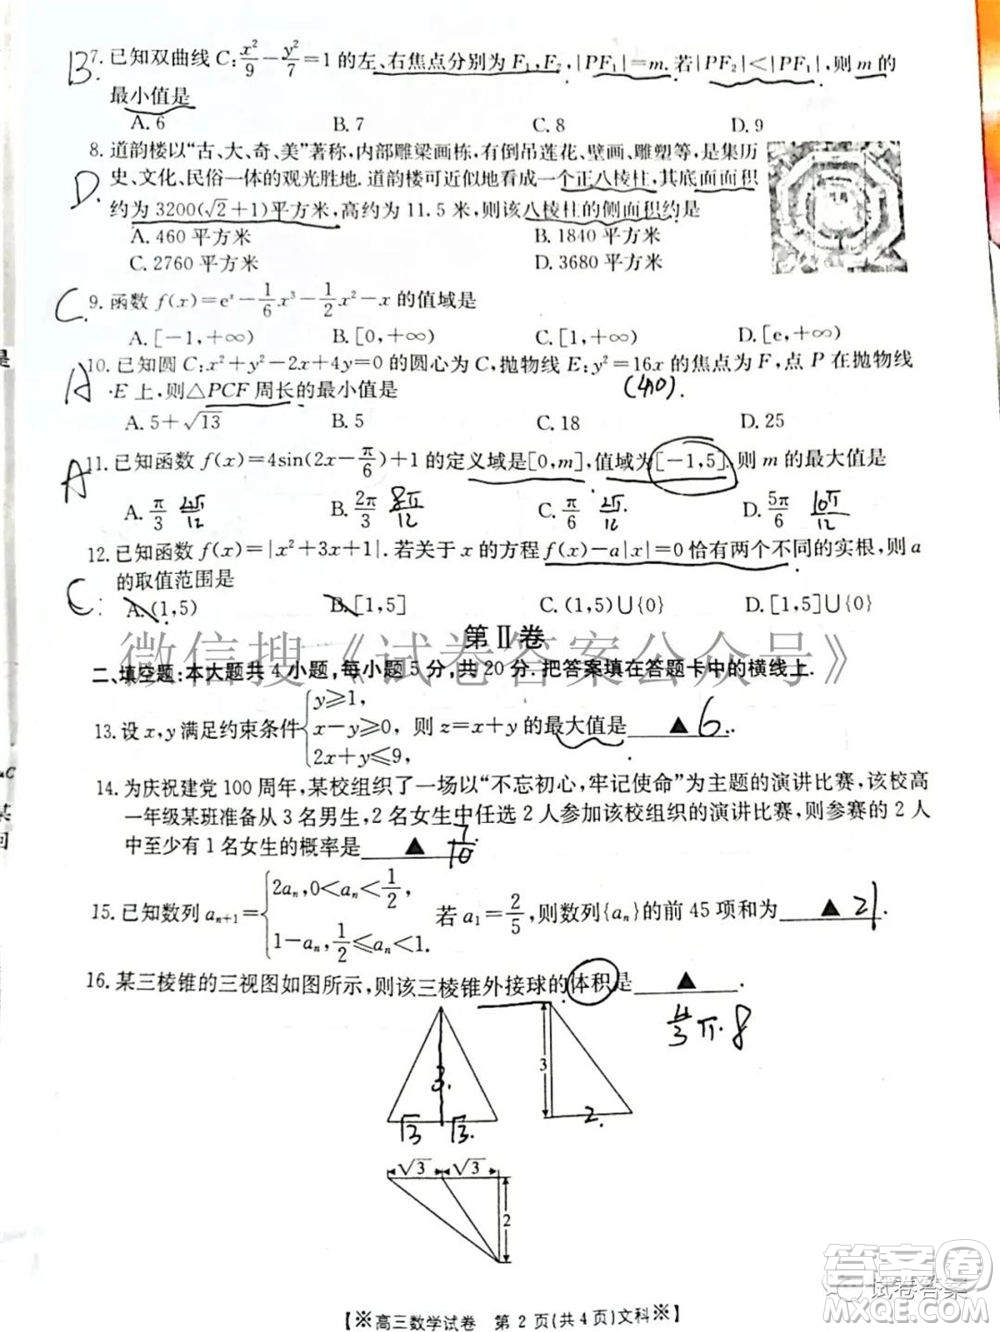 B
7. 已知双曲线 C: x²/9 − y²/7 = 1 的左、右焦点分别为 F₁, F₂, |PF₁| = m. 若 |PF₂| < |PF₁|, 则 m 的
最小值是
A. 6 B. 7 C. 8 D. 9
D
8. 道韵楼以“古、大、奇、美”著称, 内部雕梁画栋, 有倒吊莲花、壁画、雕塑等, 是集历
史、文化、民俗一体的观光胜地. 道韵楼可近似地看成一个正八棱柱, 其底面面积
约为 3200(√2+1)平方米, 高约为 11.5 米, 则该八棱柱的侧面积约是
A. 460 平方米 B. 1840 平方米
C. 2760 平方米 D. 3680 平方米
C.
9. 函数 f(x) = eˣ − 1/6 x³ − 1/2 x² − x 的值域是
A. [−1, +∞) B. [0, +∞) C. [1, +∞) D. [e, +∞)
A
10. 已知圆 C: x² + y² − 2x + 4y = 0 的圆心为 C, 抛物线 E: y² = 16x 的焦点为 F, 点 P 在抛物线
E 上, 则△PCF 周长的最小值是 (4,0)
A. 5+√13 B. 5 C. 18 D. 25
A
11. 已知函数 f(x) = 4sin(2x − π/6) + 1 的定义域是[0, m], 值域为[−1, 5]. 则 m 的最大值是
A. π/3 4π/12 B. 2π/3 8π/12 C. π/6 2π/12 D. 5π/6 10π/12
C
12. 已知函数 f(x) = |x² + 3x + 1|. 若关于 x 的方程 f(x) − a|x| = 0 恰有两个不同的实根, 则 a
的取值范围是
A. (1, 5) B. [1, 5] C. (1, 5)∪{0} D. [1, 5]∪{0}
第Ⅱ卷
微信搜《试卷答案公众号》
二、填空题: 本大题共 4 小题, 每小题 5 分, 共 20 分. 把答案填在答题卡中的横线上.
13. 设 x, y 满足约束条件 { y≥1, x−y≥0, 2x+y≤9, 则 z = x+y 的最大值是 ▲ 6 .
14. 为庆祝建党 100 周年, 某校开展了一场以“不忘初心, 牢记使命”为主题的演讲比赛, 该校高
一年级某班准备从 3 名男生, 2 名女生中任选 2 人参加学校组织的演讲比赛, 则参赛的 2 人
中至少有 1 名女生的概率是 ▲ 7/10
15. 已知数列 aₙ₊₁ = { 2aₙ, 0<aₙ<1/2, 1−aₙ, 1/2≤aₙ<1. 若 a₁ = 2/5, 则数列{aₙ}的前 45 项和为 ▲ 21 .
16. 某三棱锥的三视图如图所示, 则该三棱锥外接球的体积是 ▲ .
4/3 π·8
3. 3 2.
√3 √3.
√3 √3
2
【※高三数学试卷 第 2 页(共 4 页)文科※】
答案圈
试卷答案
MXQE.COM